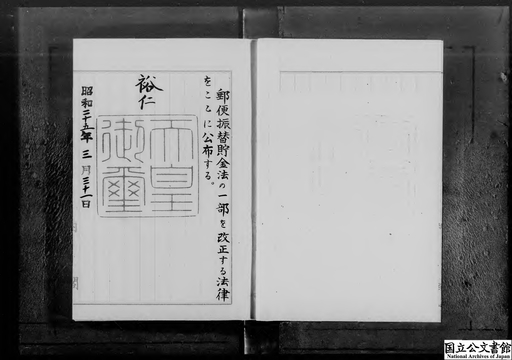 郵便振替貯金法の一部を改正する法律
をここに公布する。
裕仁
天皇
御璽
昭和三十五年三月三十一日
国立公文書館
National Archives of Japan